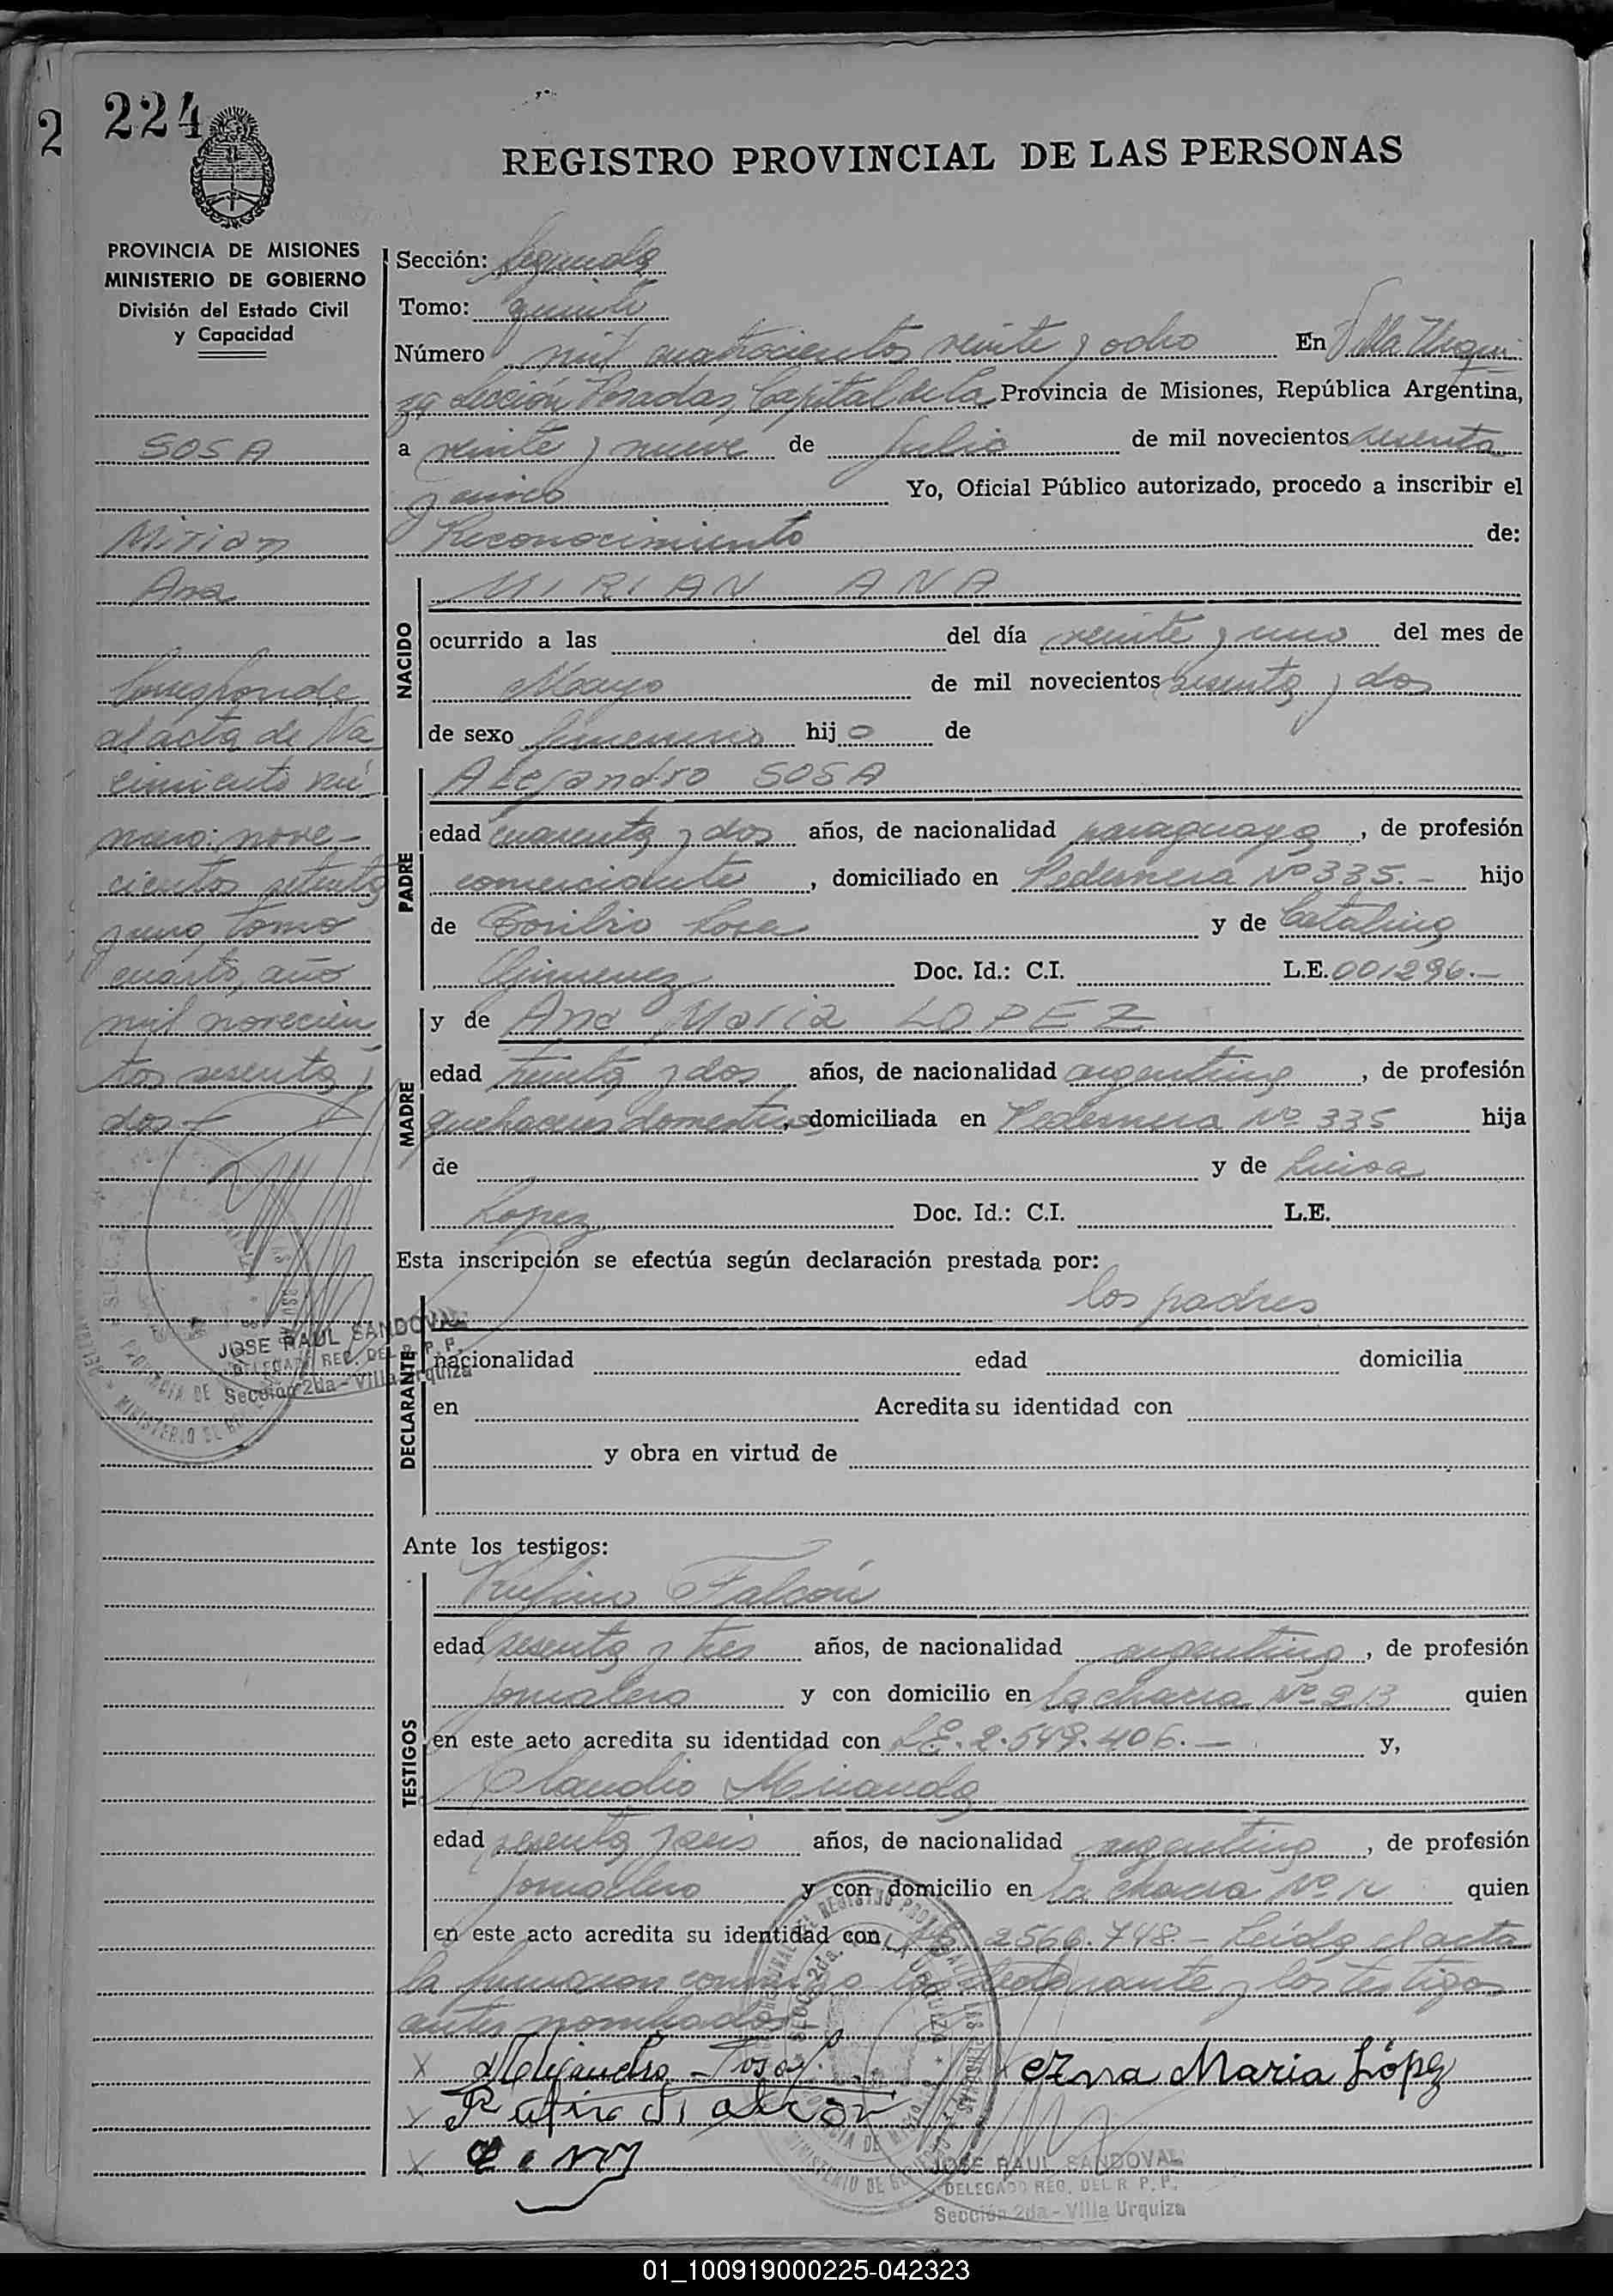 2 224
REGISTRO PROVINCIAL DE LAS PERSONAS
PROVINCIA DE MISIONES
MINISTERIO DE GOBIERNO
División del Estado Civil
y Capacidad
SOSA
Mirian
Ana
Corresponde
al acta de Na
cimiento nú
mero: nove-
cientos setenta
y uno, tomo
cuarto, año
mil novecien
tos sesenta y
dos -
JOSE RAUL SANDOVAL
DELEGADO REG. DEL R. P. P.
Sección 2da - Villa Urquiza
Sección: Segunda
Tomo: quinto
Número mil cuatrocientos veinte y ocho En Villa Urqui
za Sección Posadas, Capital de la Provincia de Misiones, República Argentina,
a veinte y nueve de Julio de mil novecientos sesenta
y cinco Yo, Oficial Público autorizado, procedo a inscribir el
Reconocimiento de:
NACIDO
MIRIAN ANA
ocurrido a las del día veinte y uno del mes de
Mayo de mil novecientos sesenta y dos
de sexo femenino hijo de
PADRE
Alejandro SOSA
edad cuarenta y dos años, de nacionalidad paraguaya, de profesión
comerciante, domiciliado en Pedernera Nº 335.- hijo
de Toribio Sosa y de Catalina
Gimenez Doc. Id.: C.I. L.E. 001296.-
MADRE
y de Ana Maria LOPEZ
edad treinta y dos años, de nacionalidad argentina, de profesión
quehaceres domesticos, domiciliada en Pedernera Nº 335 hija
de y de Luisa
Lopez Doc. Id.: C.I. L.E.
Esta inscripción se efectúa según declaración prestada por:
los padres
DECLARANTE
nacionalidad edad domicilia
en Acredita su identidad con
y obra en virtud de
Ante los testigos:
TESTIGOS
Rufino Falcón
edad sesenta y tres años, de nacionalidad argentina, de profesión
jornalero y con domicilio en la chacra Nº 213 quien
en este acto acredita su identidad con L.E. 2.549.406.- y,
Claudio Miranda
edad sesenta y seis años, de nacionalidad argentina, de profesión
jornalero y con domicilio en la chacra Nº quien
en este acto acredita su identidad con 2566.748.- Leída el acta
la firmaron conmigo los declarante y los testigos
antes nombrados
x Alejandro Sosa x Ana Maria López
x Rufino Falcon
x
JOSE RAUL SANDOVAL
DELEGADO REG. DEL R. P. P.
Sección 2da - Villa Urquiza
01_100919000225-042323